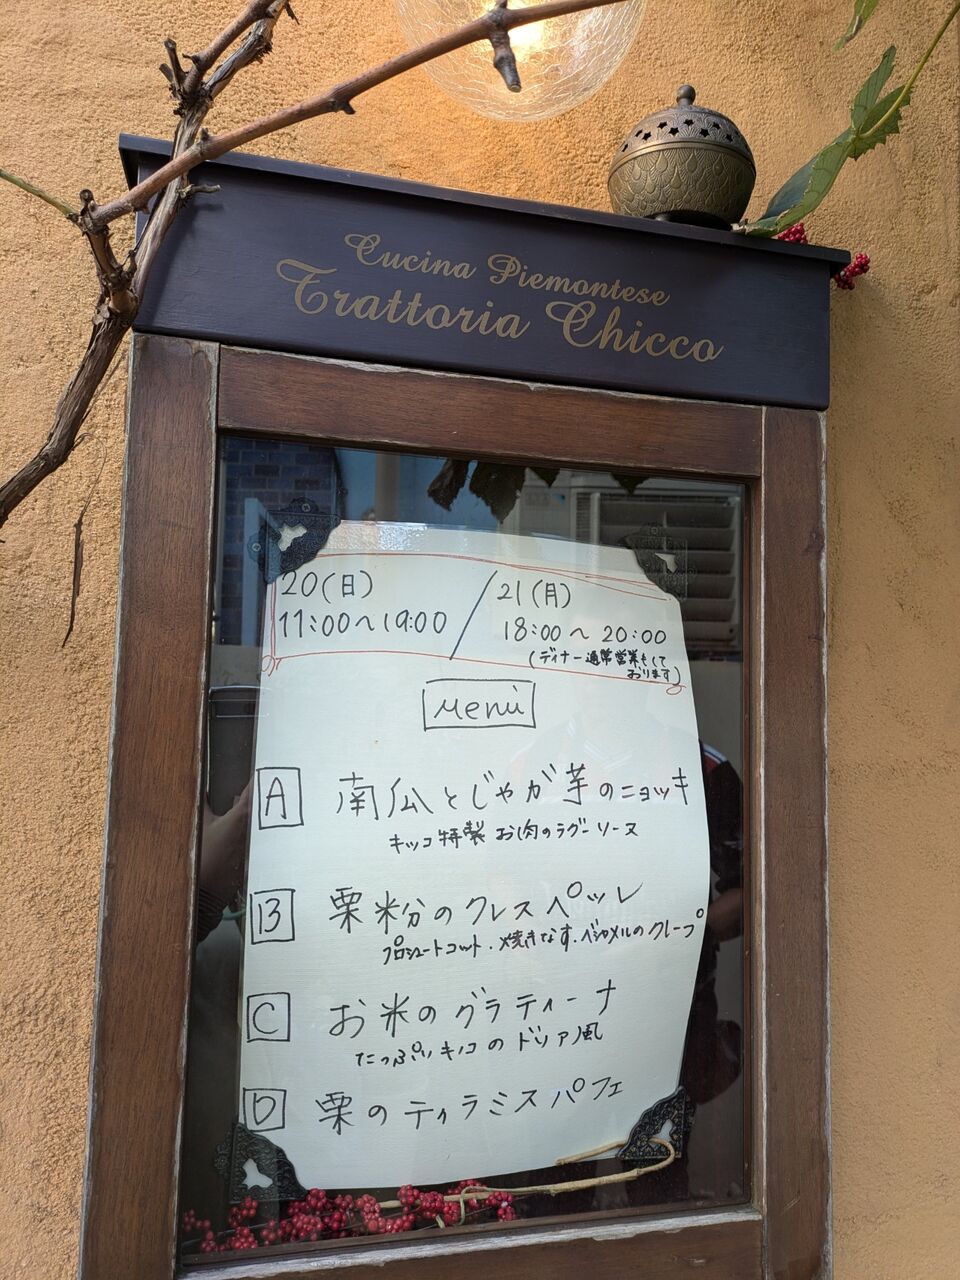 Cucina Piemontese
Trattoria Chicco
20(日) / 21(月)
11:00～19:00 18:00～20:00
(ディナー通常営業もして
おります)
Menù
A 南瓜とじゃが芋のニョッキ
キッコ特製 お肉のラグーソース
B 栗粉のクレスペッレ
プロシュートコット・焼きなす・ベシャメルのクレープ
C お米のグラティーナ
たっぷりキノコのドリア風
D 栗のティラミスパフェ